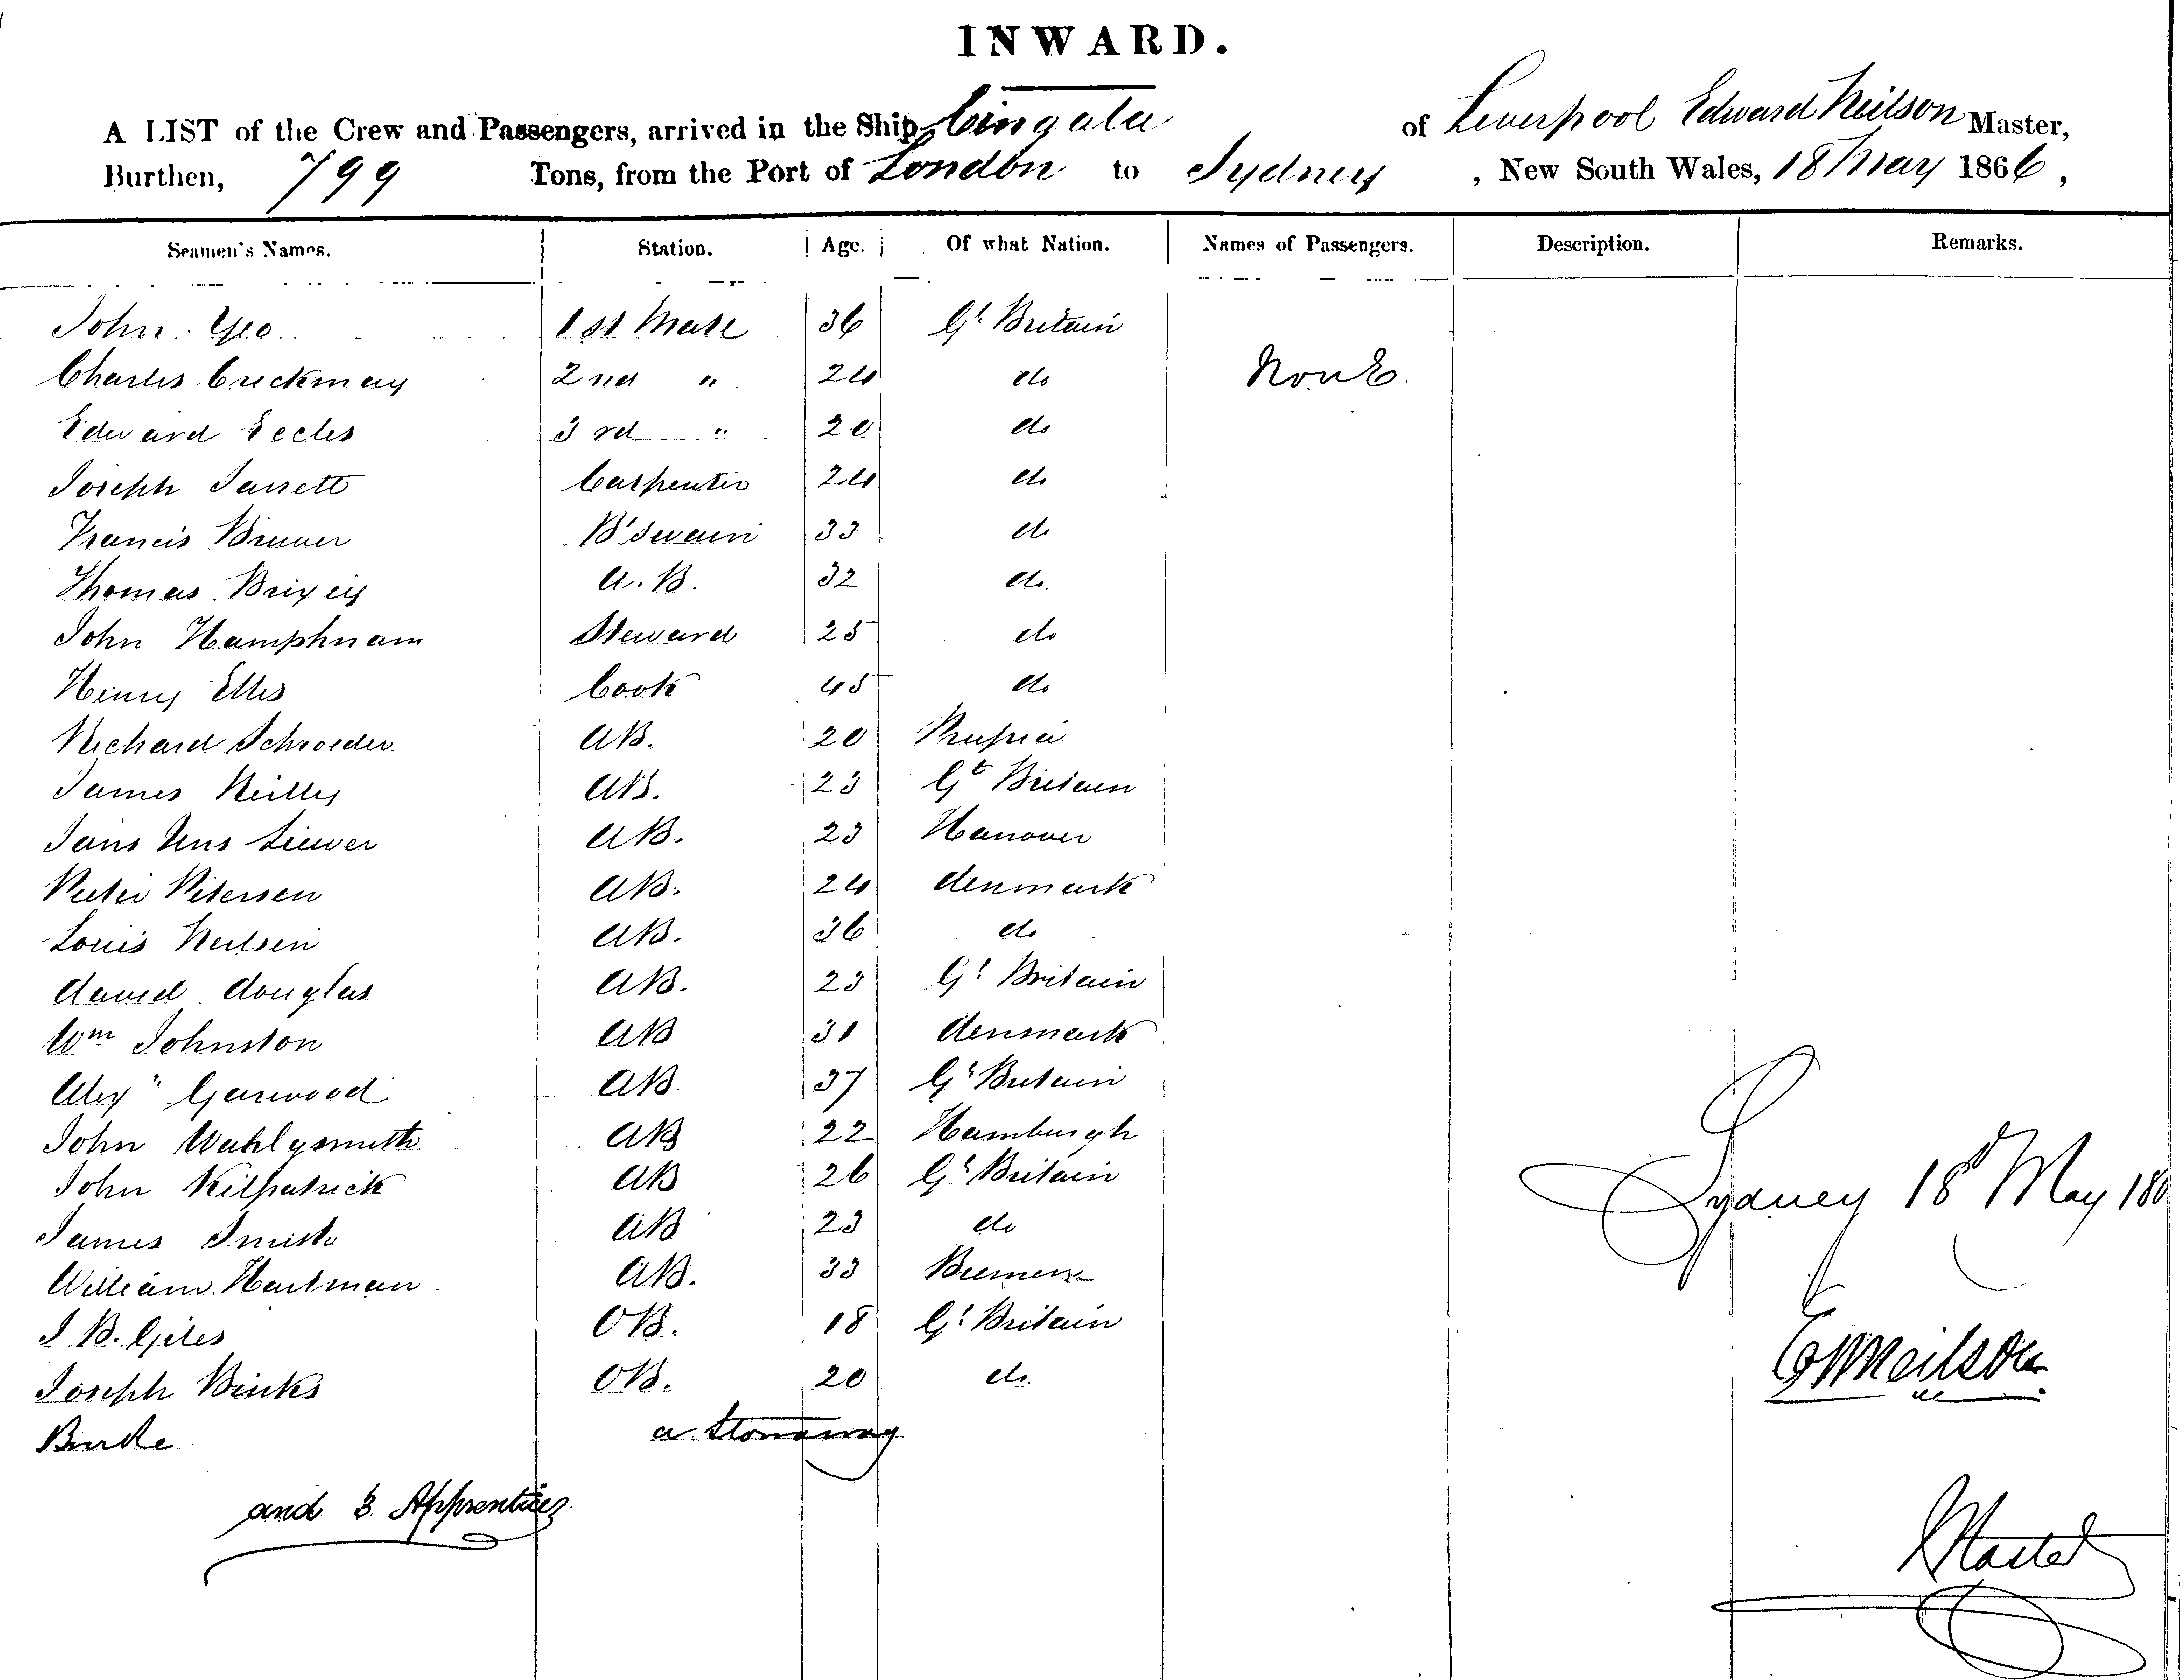 INWARD.
A LIST of the Crew and Passengers, arrived in the Ship of Liverpool Edward Neilson Master,
Burthen, 799 Tons, from the Port of London to Sydney , New South Wales, 18 May 1866,
Seamen's Names. Station. Age. Of what Nation. Names of Passengers. Description. Remarks.
John Yeo 1st Mate 36 Gt Britain
Charles Crickmay 2nd " 24 do None.
Edward Eccles 3rd " 20 do
Joseph Jarrett Carpenter 24 do
Francis Brewer B'swain 33 do
Thomas Brixey A.B. 32 do
John Hamphnam Steward 25 do
Henry Ellis Cook 45 do
Richard Schroeder AB. 20 Prussia
James Reilly AB. 23 Gt Britain
Jans AB. 23 Hanover
Peter Petersen AB. 24 denmark
Louis Neilsen AB. 36 do
david douglas AB. 23 Gt Britain
Wm Johnston AB 31 denmark
Alexr Garwood AB 37 Gt Britain
John AB 22 Hamburgh
John Kilpatrick AB 26 Gt Britain
James Smith AB 23 do
William Hartman AB. 33 Bremen
J B. Giles OB. 18 Gt Britain
Joseph Binks OB. 20 do
Burke a Stowaway
and 3 Apprentices
Sydney 18 May 186
Neilson
Master